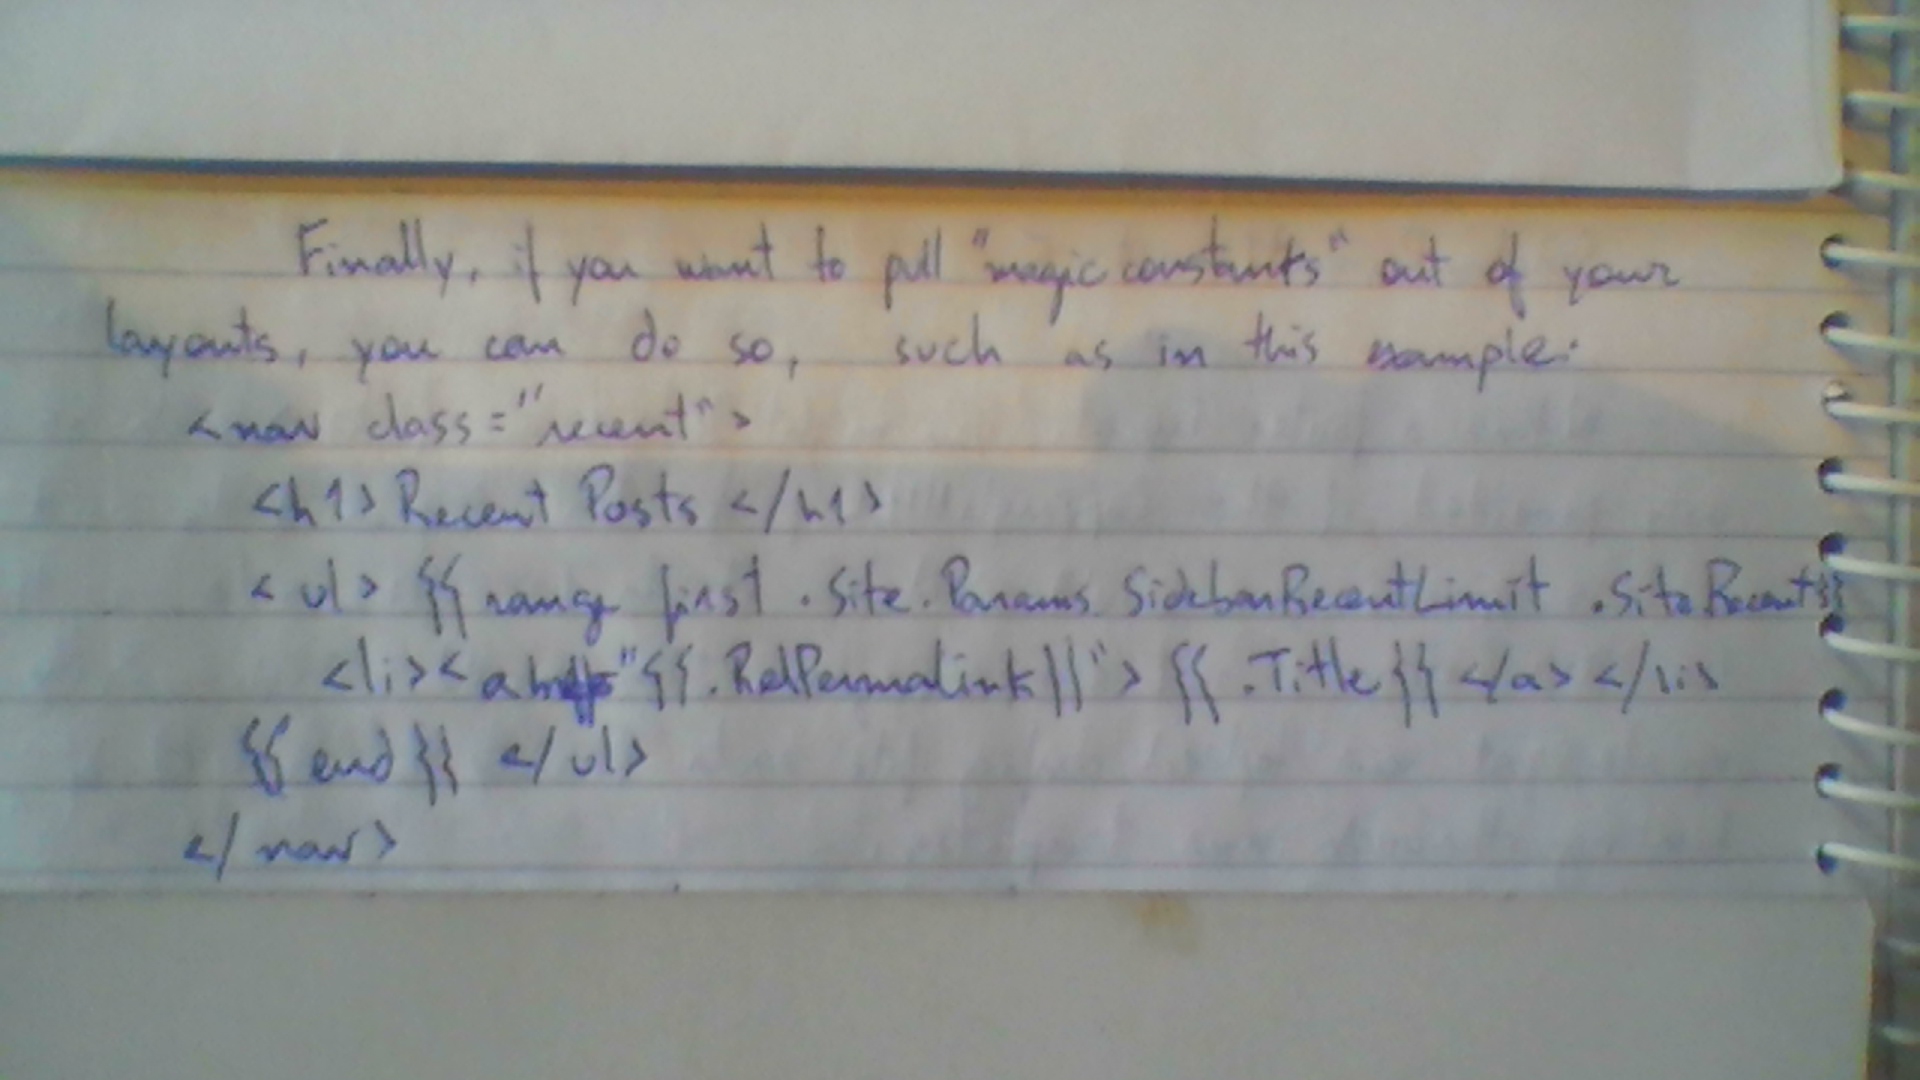 Finally, if you want to pull "magic constants" out of your
layouts, you can do so, such as in this example:
<nav class="recent">
<h1> Recent Posts </h1>
<ul> {{ range first .Site.Params.SidebarRecentLimit .Site.Recent }}
<li><a href="{{.RelPermalink}}"> {{.Title}} </a></li>
{{ end }} </ul>
</nav>